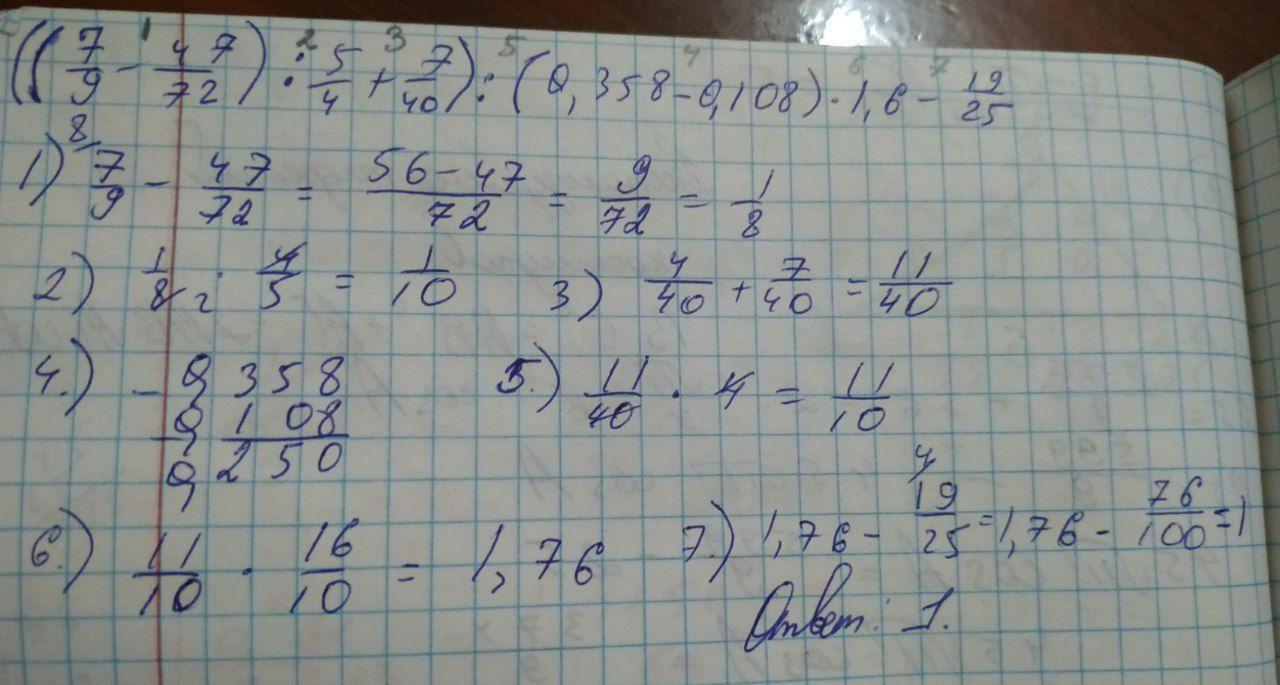 ((7/9 - 47/72) : 5/4 + 7/40) : (0,358 - 0,108) · 1,6 - 19/25
1) 7/9 - 47/72 = 56 - 47/72 = 9/72 = 1/8
2) 1/8 · 4/5 = 1/10 3) 4/40 + 7/40 = 11/40
4.) - 0,358 5.) 11/40 · 4 = 11/10
0,108
0,250
6.) 11/10 · 16/10 = 1,76 7.) 1,76 - 19/25 = 1,76 - 76/100 = 1
Ответ: 1.